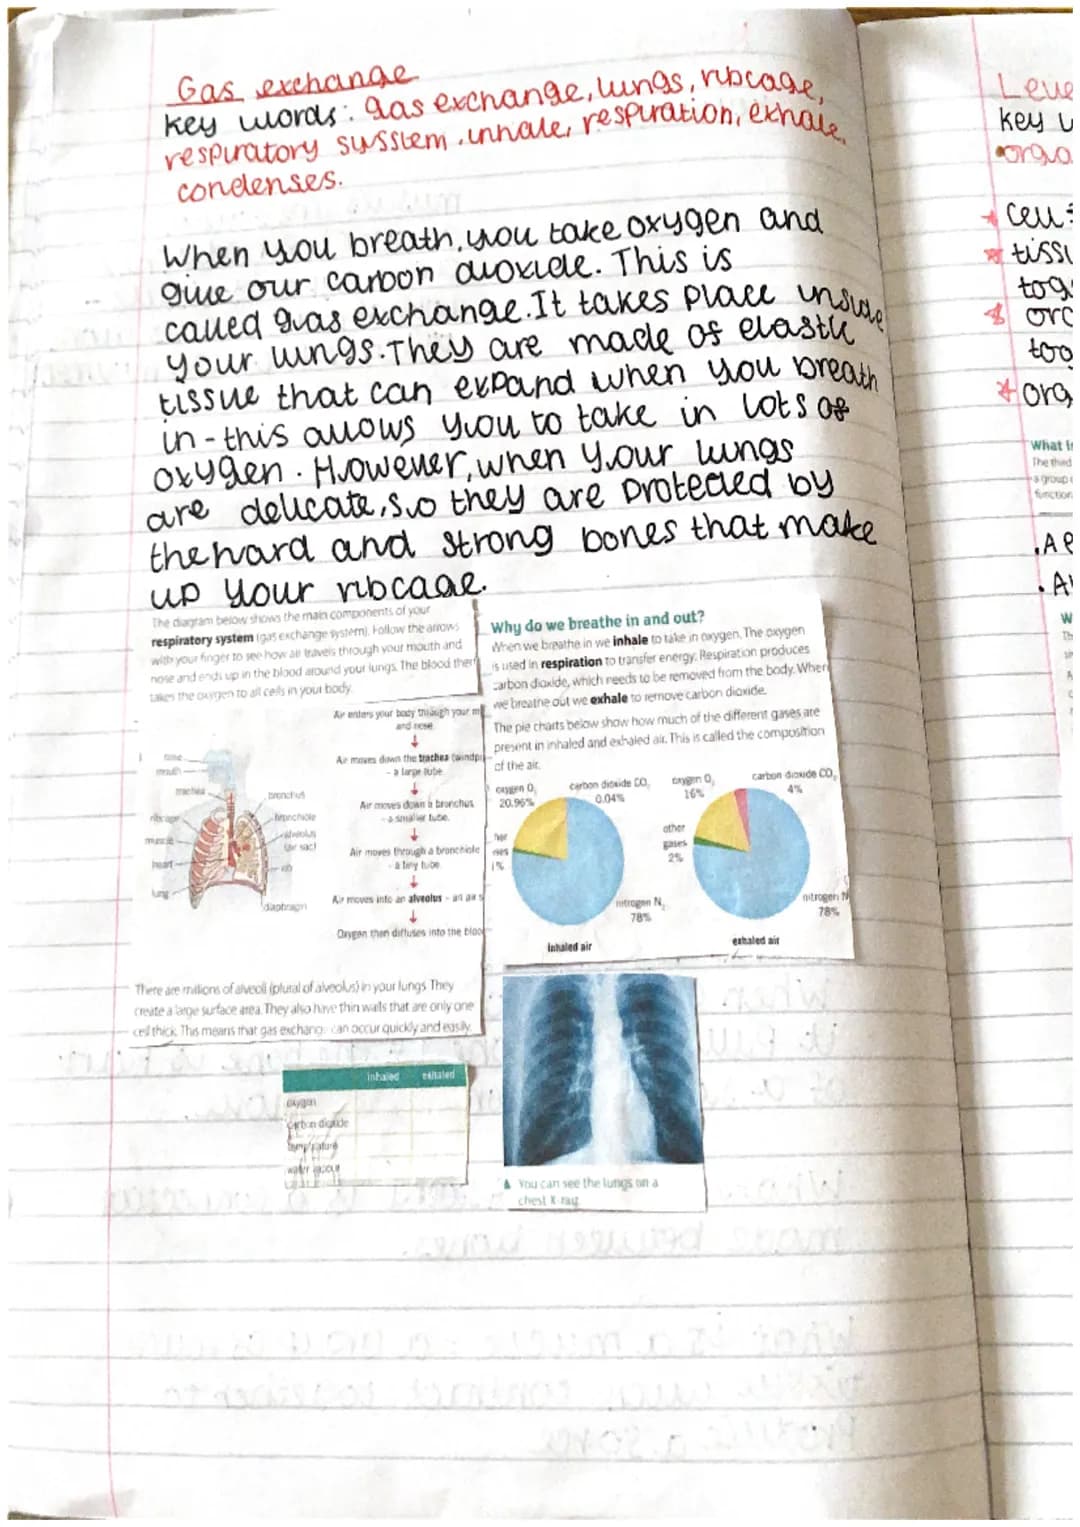 Gas exchange
key words: gas exchange, lungs, ribcage,
respiratory susstem. inhale, respiration, exhale,
condenses.
When you breath, you take oxygen and
give our carbon dioxide. This is
called gas exchange. It takes place inside
your lungs. They are made of elastic
tissue that can expand when you breath
in - this allows you to take in lots of
oxygen. However, when your lungs
are delicate, so they are protected by
the hard and strong bones that make
up your ribcage.
The diagram below shows the main components of your
respiratory system (gas exchange system). Follow the arrows
with your finger to see how air travels through your mouth and
nose and ends up in the blood around your lungs. The blood then
takes the oxygen to all cells in your body.
Air enters your body through your
and nose
Air moves down the trachea
- a large tube.
Air moves down a bronchus
- a smaller tube.
Air moves through a bronchiole
- a tiny tube.
Air moves into an alveolus - an air
Oxygen then diffuses into the
nose
mouth
trachea
ribcage
muscle
heart
lung
bronchus
bronchiole
alveolus
(air sac)
rib
diaphragm
There are millions of alveoli (plural of alveolus) in your lungs They
create a large surface area. They also have thin walls that are only one
cell thick. This means that gas exchange can occur quickly and easily.
inhaled exhaled
oxygen
carbon dioxide
temperature
water vapour
Why do we breathe in and out?
When we breathe in we inhale to take in oxygen. The oxygen
is used in respiration to transfer energy. Respiration produces
carbon dioxide, which needs to be removed from the body. When
we breathe out we exhale to remove carbon dioxide.
The pie charts below show how much of the different gases are
present in inhaled and exhaled air. This is called the composition
of the air.
oxygen O₂
20.96%
carbon dioxide CO₂
0.04%
1%
nitrogen N₂
78%
inhaled air
oxygen O₂
16%
carbon dioxide CO₂
4%
other
gases
2%
nitrogen N
78%
exhaled air
You can see the lungs on a
chest X-ray.
key
tissu
What
The third
a group
function